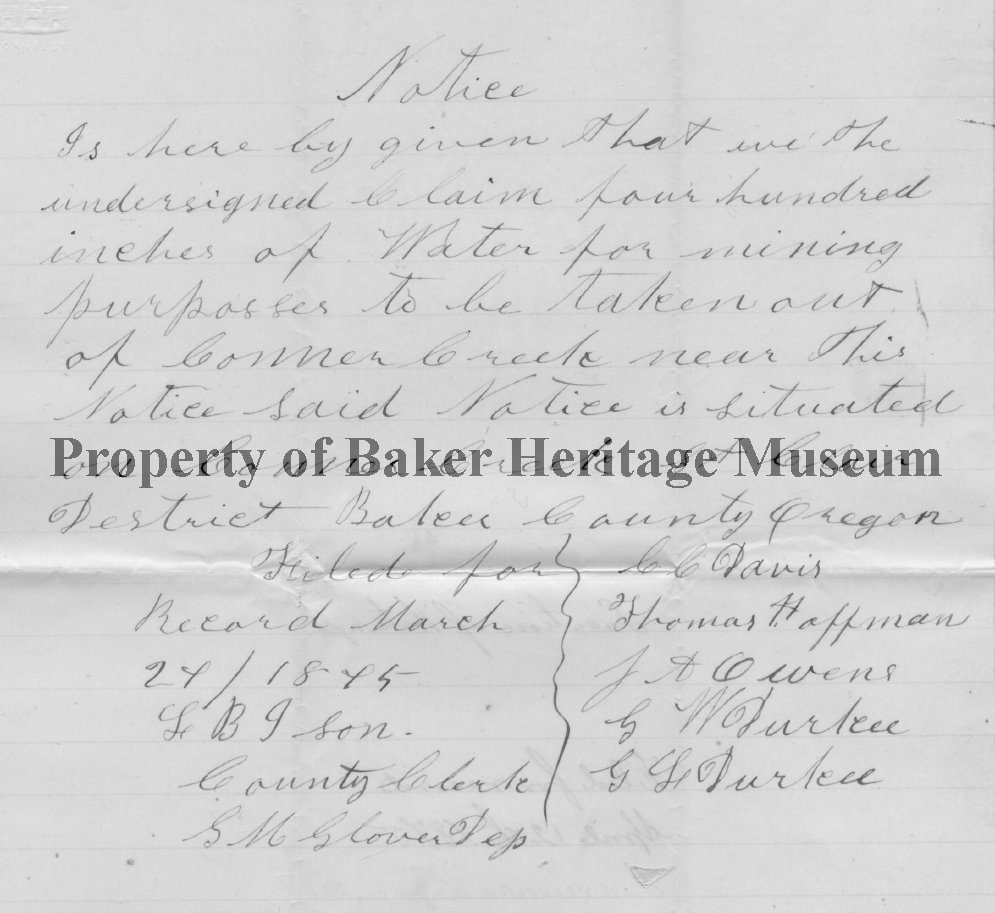 Notice
Is here by given that we the
undersigned Claim four hundred
inches of Water for mining
purposses to be taken out
of Conner Creek near this
Notice said Notice is situated
on Conner Creek St Clair
Property of Baker Heritage Museum
Destrict Baker County Oregon
Filed for
Record March
24/1845
L B Ison.
County Clerk
G M Glover Dep
C C Davis
Thomas Hoffman
J A Owens
G W Durkee
G L Durkee